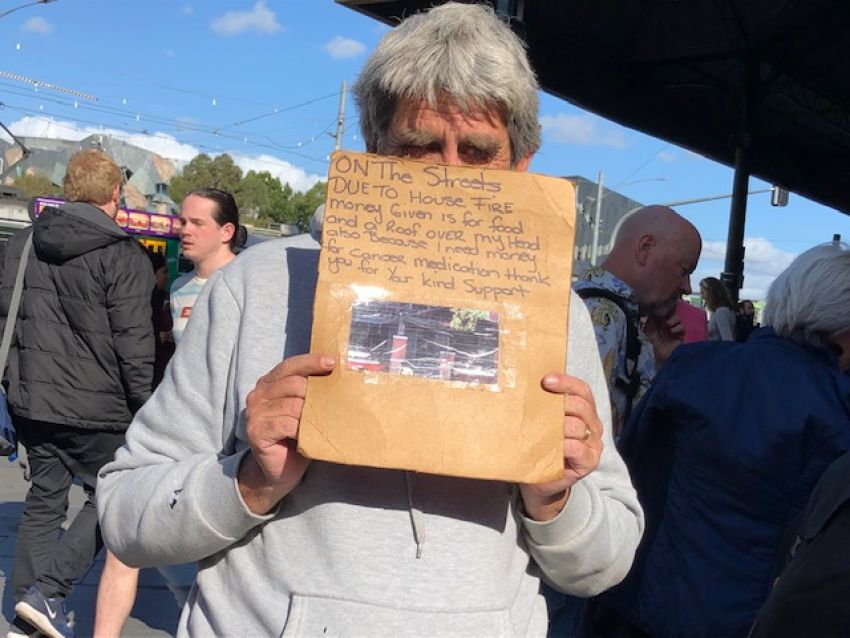 ON The Streets
DUE TO HOUSE FIRE
money Given is for food
and a Roof over my Head
also Because I need money
for Cancer medication thank
you for Your kind Support